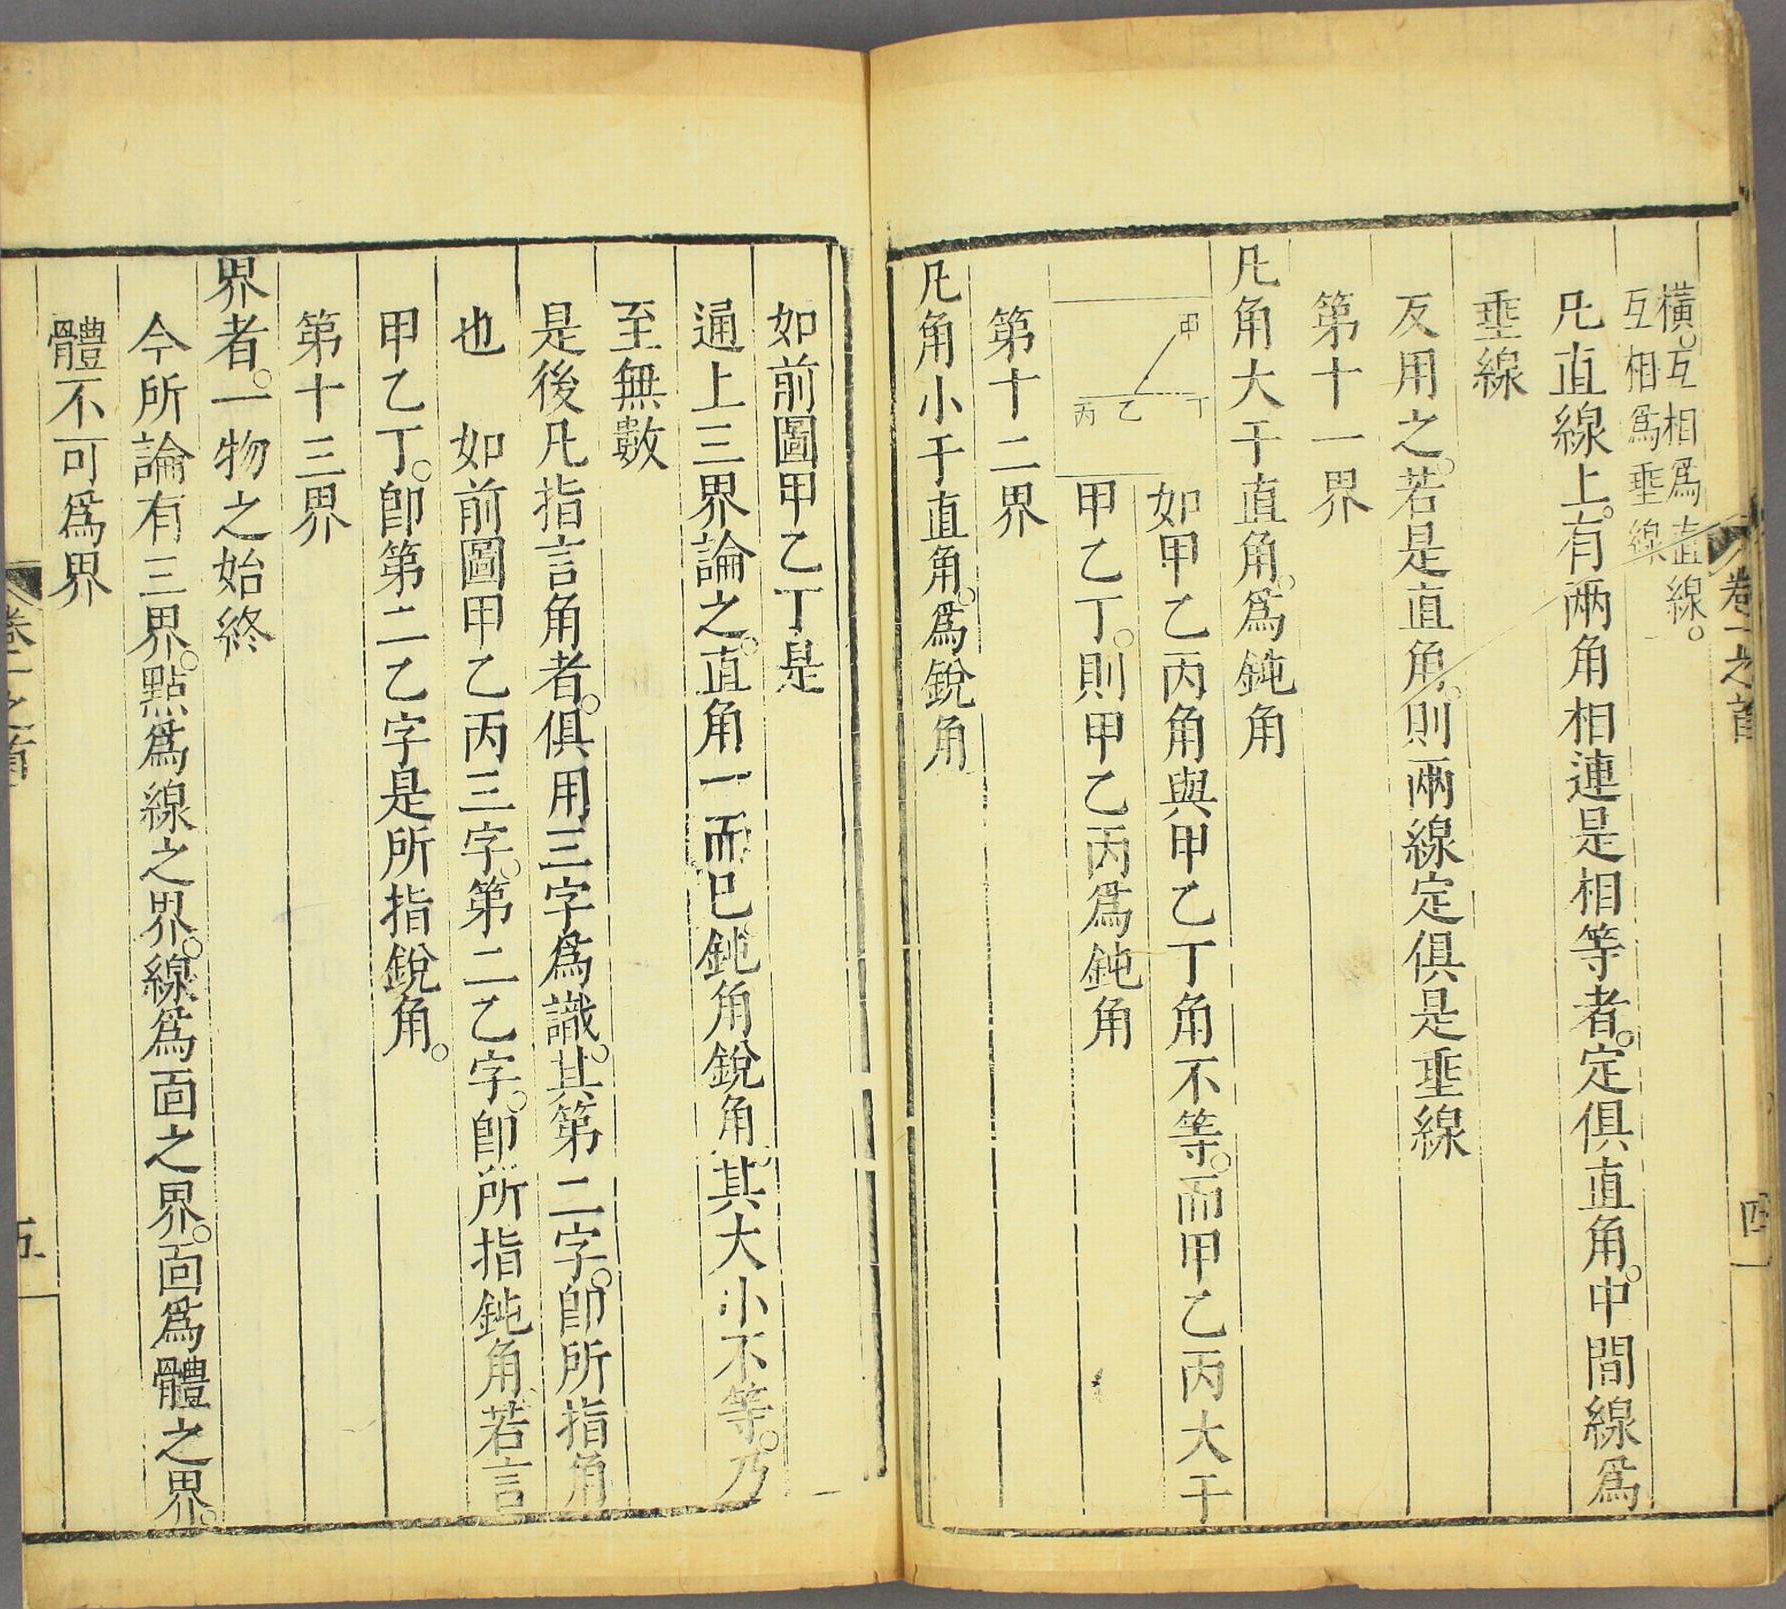 卷一之首
四
橫。互相爲直線。
互相爲垂線
凡直線上。有兩角相連是相等者。定俱直角。中間線爲
垂線
反用之。若是直角。則兩線定俱是垂線
第十一界
凡角大于直角。爲鈍角
甲
丙乙丁
如甲乙丙角與甲乙丁角不等。而甲乙丙大于
甲乙丁。則甲乙丙爲鈍角
第十二界
凡角小于直角。爲銳角
如前圖甲乙丁是
通上三界論之。直角一而已鈍角銳角。其大小不等。乃
至無數
是後凡指言角者。俱用三字爲識。其第二字。卽所指角
也　如前圖甲乙丙三字。第二乙字。卽所指鈍角。若言
甲乙丁。卽第二乙字是所指銳角。
第十三界
界者。一物之始終
今所論有三界。點爲線之界。線爲面之界。面爲體之界。
體不可爲界
卷一之首
五